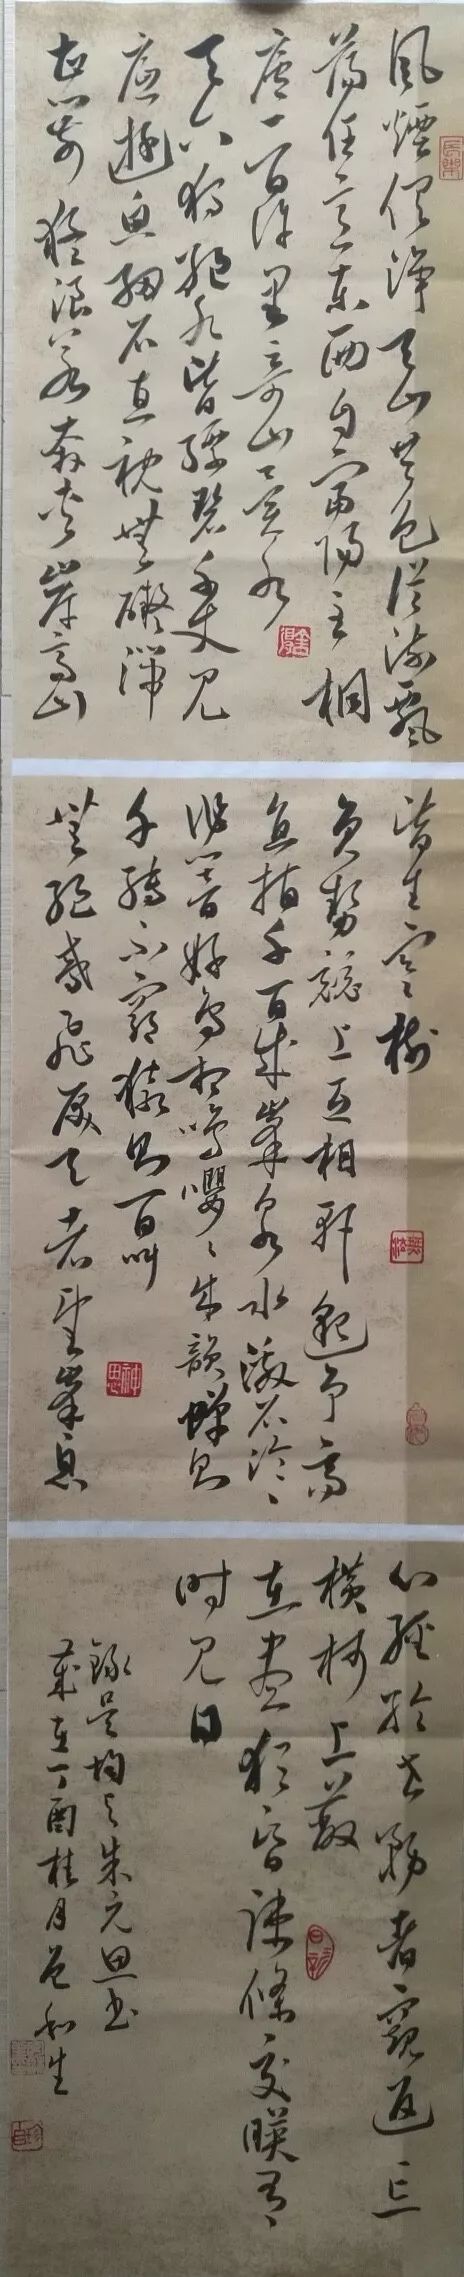 風煙俱淨天山共色從流飄
蕩任意東西自富陽至桐
廬一百許里奇山異水
天下獨絕水皆縹碧千丈見
底遊魚細石直視無礙湍
甚箭猛浪若奔夾岸高山
皆生寒樹
負勢競上互相軒邈爭高
直指千百成峯泉水激石泠〻
作響好鳥相鳴嚶〻成韻蟬則
千轉不窮猿則百叫
神思
無絕鳶飛戾天者望峯息
心經綸世務者窺返忘
橫柯上蔽
在晝猶昏疎條交映有〻
時見日
錄吳均與朱元思書
歲在丁酉桂月和生